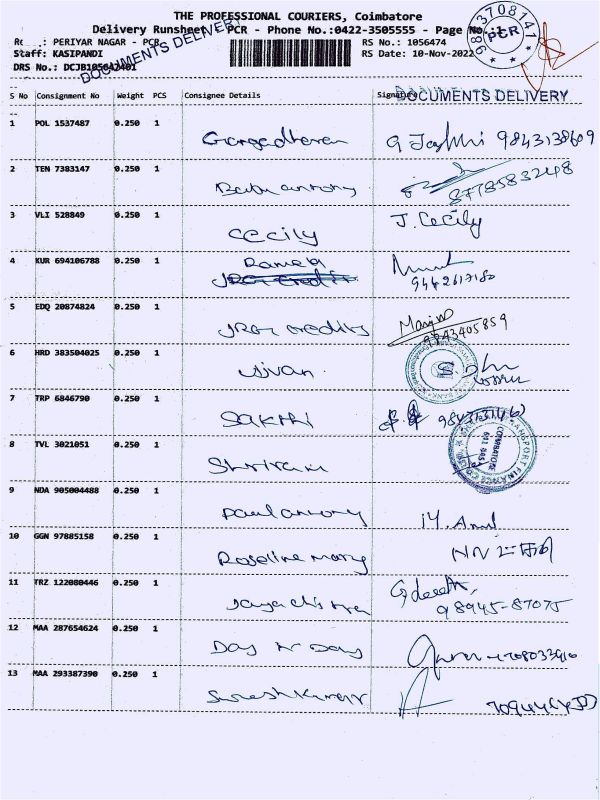 THE PROFESSIONAL COURIERS, Coimbatore
Delivery Runsheet PCR - Phone No.:0422-3505555 - Page No.:1
: PERIYAR NAGAR - PCR RS No.: 1056474
Staff: KASIPANDI RS Date: 10-Nov-2022
DRS No.: DCJB105642401
DOCUMENTS DELIVERY
PCR
S No Consignment No Weight PCS Consignee Details Signature
DOCUMENTS DELIVERY
1 POL 1537487 0.250 1 9843138609
2 TEN 7383147 0.250 1 Babu antony 8778583248
3 VLI 528849 0.250 1 CECILY J. Cecily
4 KUR 694106788 0.250 1 9442617180
5 EDQ 20874824 0.250 1 credits 9843405859
6 HRD 383504025 0.250 1 Jivan
7 TRP 6846790 0.250 1 SAKTHI
8 TVL 3021051 0.250 1 Shriram
COIMBATORE
9 NDA 905004488 0.250 1 Paul antony
10 GGN 97885158 0.250 1 Roseline mary
11 TRZ 122080446 0.250 1 98945-87075
12 MAA 287654624 0.250 1 Day to Day
13 MAA 293387390 0.250 1 Sureshkumar